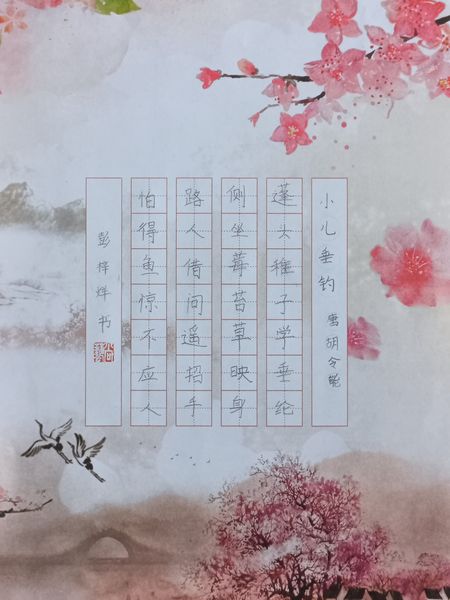 小儿垂钓 唐 胡令能
蓬头稚子学垂纶
侧坐莓苔草映身
路人借问遥招手
怕得鱼惊不应人
彭梓烊书